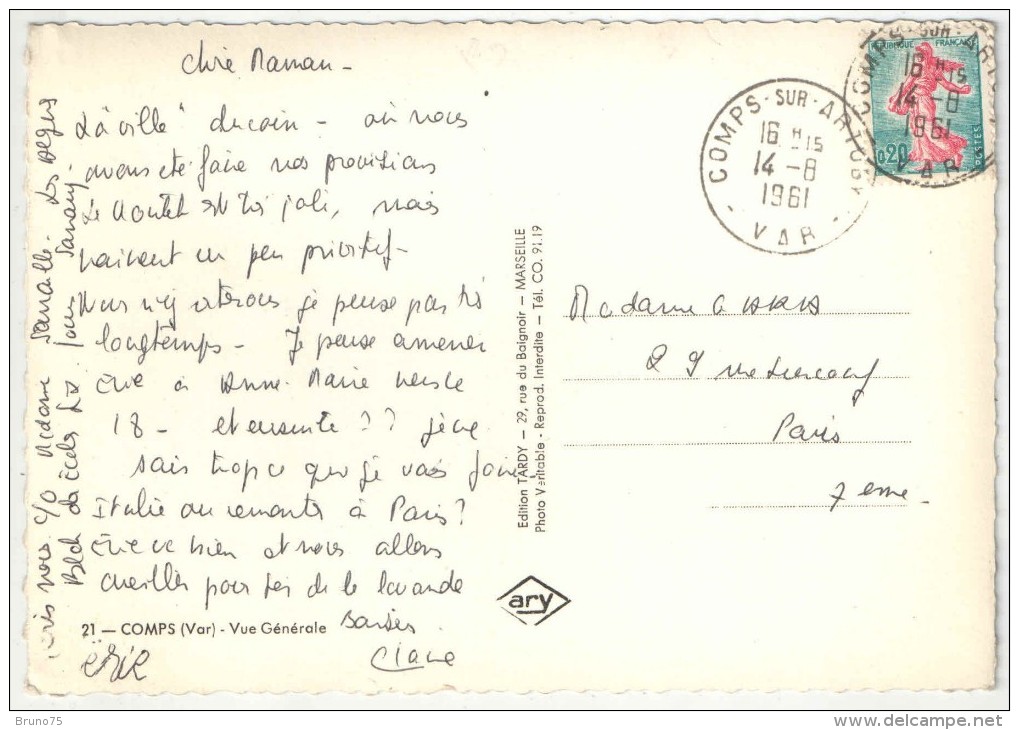 Chère Maman -
"La ville" du coin - où nous
avons été faire nos provisions
Le est très joli, mais
vraiment un peu primitif -
Nous n'y resterons je pense pas très
longtemps - Je pense amener
Eric à Anne-Marie vers le
18 - et ensuite ?? je ne
sais trop ce que je vais faire
Italie ou remonter à Paris ?
Eric va bien et nous allons
cueillir pour toi de la lavande
Baisers
Claire
Eric
Ecris nous c/o Madame
Blch des Ecoles Sanary
21 — COMPS (Var) - Vue Générale
Edition TARDY — 29, rue du Baignoir — MARSEILLE
Photo Véritable - Reprod. Interdite — Tél. CO. 91.19
ary
COMPS-SUR-ARTUBY
16 H 15
14 -8
1961
- VAR -
COMPS-SUR-ARTUBY
16 H 15
14 -8
1961
VAR
REPUBLIQUE FRANÇAISE
0,20
POSTES
Madame
29 rue
Paris
7eme -
Bruno75
delcampe.net